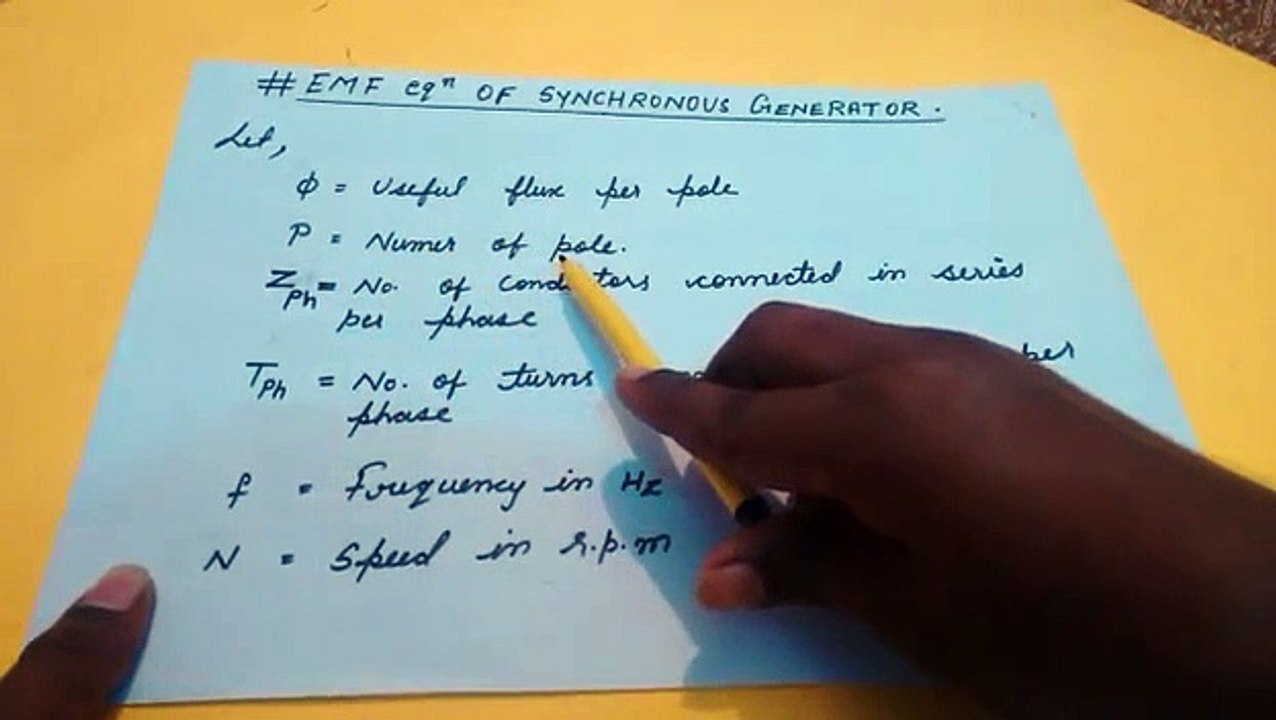 # EMF eqn OF SYNCHRONOUS GENERATOR.
Let,
φ = Useful flux per pole
P = Numer of pole.
ZPh = No. of conductors connected in series
per phase
TPh = No. of turns per
phase
f = Frequency in Hz
N = Speed in r.p.m